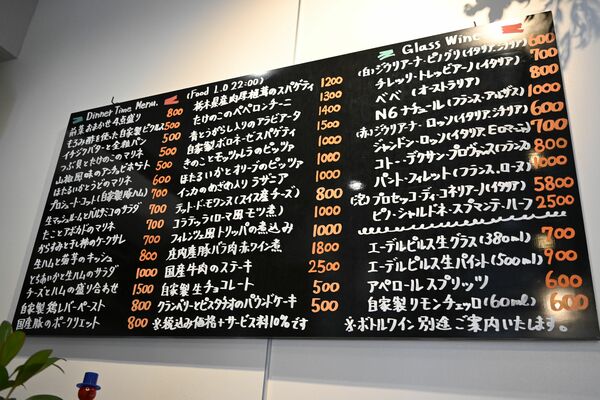 Dinner Time Menu.
前菜おまかせ4点盛り 800
自家製ピクルス 500
イチジクバターと全粒パン 500
つぶ貝とたけのこのマリネ 500
山独活風味のアンチョビポテト 500
ほたるいかとうどのマリネ 500
プロシュート・コット(自家製豚ハム) 700
生マッシュルームとハルチーズのサラダ 700
たことアボカドのマリネ 700
生ハムと苺 800
とちあいかと生ハムのサラダ 1000
チーズと生ハムの盛り合わせ 1500
自家製鶏レバーペースト 800
国産豚のポークリエット 800
(Food L.O 22:00)
栃木県産肉厚椎茸のスパゲティ 1200
たけのこのペペロンチーニ 1300
青とうがらし入りのアラビアータ 1400
自家製ボロネーゼスパゲティ 1500
きのことモッツァレラのピッツァ 1000
ほたるいかとオリーブのピッツァ 1000
インカのめざめ入りラザニア 1000
テット・ド・モワンヌ(スイス産チーズ) 800
コラテッラ(ローマ風モツ煮) 1000
フィレンツェ風トリッパの煮込み 1000
庄内産豚バラ肉赤ワイン煮 1800
国産牛肉のステーキ 2500
自家製生チョコレート 500
クランベリーとピスタチオのパウンドケーキ 500
※税込み価格+サービス料10%です
Glass Wine
(白)ジュリアーナ・ピノグリ(イタリア、シチリア) 600
チレッリ・トレッビアーノ(イタリア) 700
ベベ(オーストラリア) 800
N6ナチュール(フランス、アルザス) 1000
(赤)ジュリアーナ・ロッソ(イタリア、シチリア) 600
ジャンドン・ロッソ(イタリア、エミリアロマーニャ) 700
コトー・デクサン・プロヴァンス(フランス) 800
パント・フィレット(フランス、ローヌ) 1000
(泡)プロセッコ・ディ・コネリアーノ(イタリア) 5800
ピノ・シャルドネ・スプマンテ・ハーフ 2500
エーデルピルス生グラス(380ml) 700
エーデルピルス生パイント(500ml) 900
アペロールスプリッツ 600
自家製リモンチェッロ(60ml) 600
※ボトルワイン別途ご案内いたします。